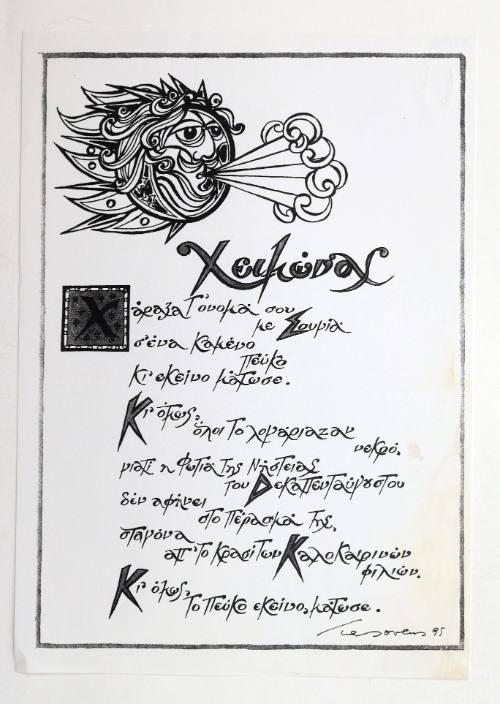 Χειμώνας
Χάραξα τ' όνομά σου
με Σουγιά
σ' ένα καμένο
πεύκο
κι' εκείνο μάτωσε.
Κι' όμως,
όλοι το λογάριαζαν
νεκρό.
γιατί η φωτιά της Νήστειας
του Δεκαπενταύγουστου
δέν αφήνει
στο πέρασμά της,
σταγόνα
απ' το κρασί των Καλοκαιρινών
φιλιών.
Κι' όμως,
το πεύκο εκείνο, μάτωσε.
95